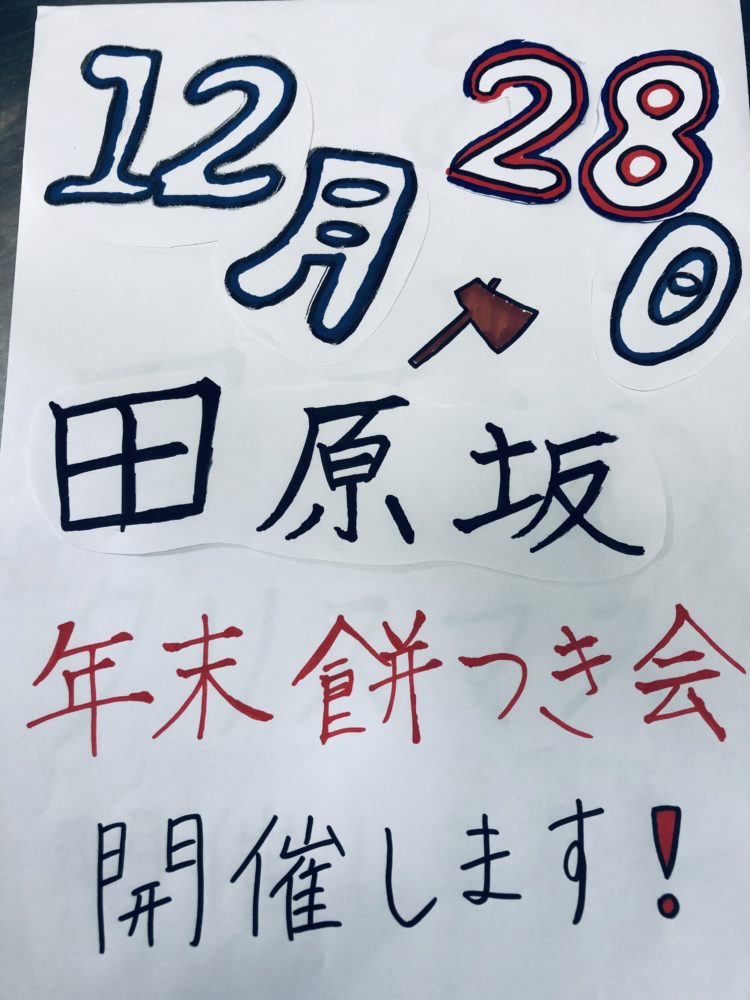 12月28日
田原坂
年末餅つき会
開催します!